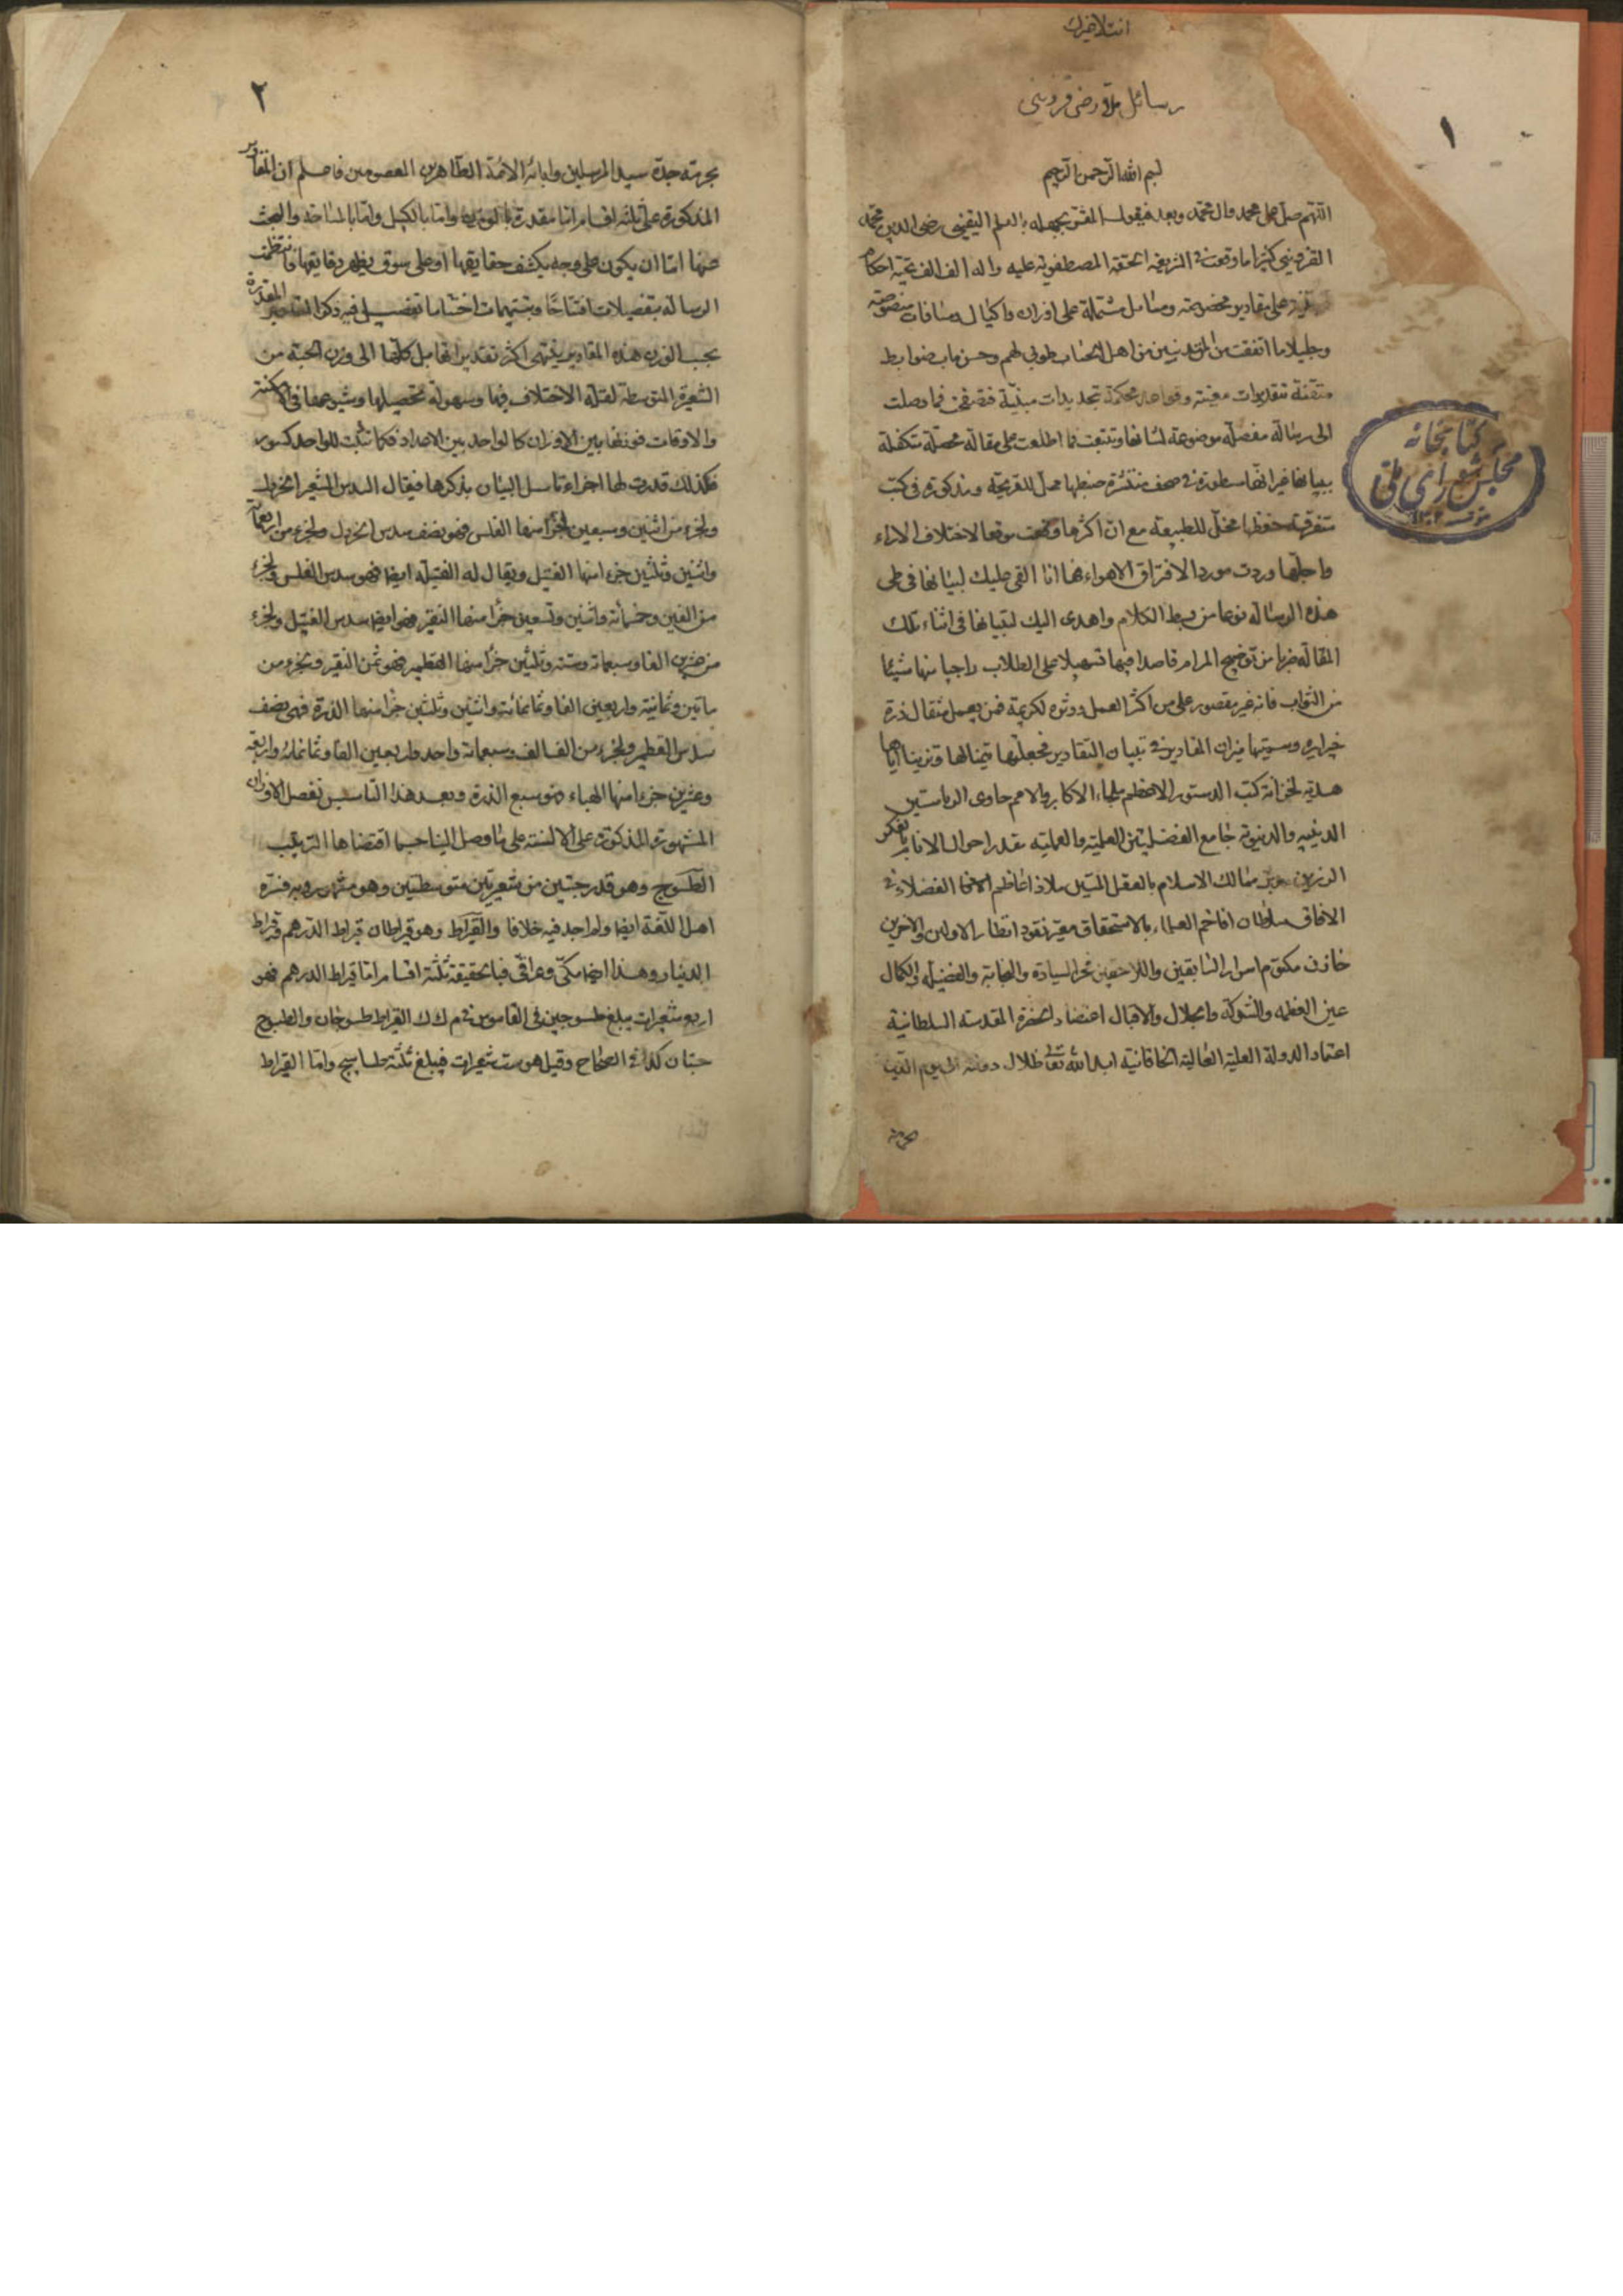 رسائل ملا رضی قزوینی
١
بسم الله الرحمن الرحیم
اللهم صل علی محمد وال محمد وبعد فیقول المقر بجهله بالعلم الیقینی رضی الدین محمد
القزوینی کثیرا ما وقعت فی الشریعة الحقة المصطفویة علیه واله الف الف تحیة احکام
علی مقادیر مخصوصة ومسایل مشتملة علی اوزان واکیال ومسافات منصوصة
وجلیلا ما اتفقت من المتدینین من اهل الحساب طوبی لهم وحسن ماب ضوابط
متقنة بتقدیرات معینة وقواعد محکمة بتحدیدات مبنیة فتصفحت فما وصلت
الی رسالة مفصلة موضوعة لشانها وتتبعت فما اطلعت علی مقالة محصلة متکفلة
ببیانها غیر انها مسطورة فی صحف منتشرة ضبطها ممل للقریحة ومذکورة فی کتب
متفرقة حفظها مخل للطبیعة مع ان اکثرها وقعت موقعا لاختلاف الاراء
واجلها وردت موردا لافتراق الاهواء فها انا القی علیک لبیانها فی طی
هذه الرسالة نوعا من بسط الکلام واهدی الیک لتبیانها فی اثناء تلک
المقالة ضربا من توضیح المرام قاصدا فیها تسهیلا علی الطلاب راجیا منها شیئا
من الثواب فانه غیر مقصور علی من اکثر العمل وثوه لکریمة فمن یعمل مثقال ذرة
خیرا یره وسمیتها میزان المقادیر فی تبیان التقادیر فجعلتها تیمنا لها وتزیینا ایاها
هدیة لخزانة کتب الدستور الاعظم ملجاء الاکابر والامم حاوی الریاستین
الدینیه والدنیویة جامع الفضیلتین العلمیة والعملیه مقدر احوال الانام بالفکر
الرزین ممالک الاسلام بالعقل المتین ملاذ اعاظم الفضلاء فی
الافاق سلطان افاخم العلماء بالاستحقاق معیر نقود انظار الاولین والاخرین
خازن مکتوم اسرار السابقین واللاحقین بحر السیادة والنجابة والفضیلة والکمال
عین العظمه والشوکة والجلال والاقبال اعتضاد الحضرة المقدسه السلطانیة
اعتماد الدولة العلیة العالیة الخاقانیة ابد الله تعالی ظلال دولته الی یوم الدین
بحرمة
کتابخانه
مجلس شورای ملی
٢
بحرمة جده سید المرسلین وابائه الائمة الطاهرین المعصومین فاعلم ان المقادیر
المذکورة علی ثلثه اقسام اما مقدرة بالوزن واما بالکیل واما بالمساحة والبحث
عنها اما ان یکون علی وجه یکشف حقایقها او علی سوق یظهر دقایقها فانتظمت
الرسالة بتفصیلات افتتاحا وبتتمیمات اختتاما تفصیل فیه ذکر المقادیر المقدرة
بحسب الوزن هذه المقادیر ینتهی اکثر تقدیراتها بل کلها الی وزن الحبة من
الشعیرة المتوسطة لقلة الاختلاف فیها وسهولة تحصیلها وشیوعها فی الامکنة
والاوقات فوزنها بین الاوزان کالواحد بین الاعداد فکما ثبتت للواحد کسور
فکذلک قدرت لها اجزاء تاسل البیان بذکرها فیقال لسدس الشعیر الخردل
ولجزء من اثنین وسبعین جزأ منها الفلس فهو نصف سدس الخردل ولجزء من اربعمأة
واثنین وثلثین جزءا منها الفتیل ویقال له الفتیلة ایضا فهو سدس الفلس ولجزء
من الفین وخمسمأة واثنین وتسعین جزأ منها النقیر فهو ایضا سدس الفتیل ولجزء
من عشرین الفا وسبعمائة وستة وثلثین جزأ منها القطمیر فهو ثمن النقیر ولجزء من
ماتین وثمانیة واربعین الفا وثمانمائة واثنین وثلثین جزأ منها الذرة فهی نصف
سدس القطمیر ولجزء من الف الف وسبعمائة واحد واربعین الفا وثمانمائة واربعة
وعشرین جزءا منها الهباء فهو سبع الذرة وبعد هذا التاسیس نفصل الاوزان
المشهورة المذکورة علی الالسنة علی ما وصل الینا حسبما اقتضاها الترتیب
الطسوج وهو قدر حبتین من شعیرتین متوسطتین وهو مشهور وبه فسره
اهل اللغة ایضا ولم اجد فیه خلافا والقیراط وهو قیراطان قیراط الدرهم وقیراط
الدینار وهذا ایضا مکی وعراقی فبالحقیقة ثلثة اقسام اما قیراط الدرهم فهو
اربع شعیرات یبلغ طسوجین فی القاموس فی م ک ک القیراط طسوجان والطسوج
حبتان کذا فی الصحاح وقیل هو ست شعیرات فیبلغ ثلثة طساسیج واما القیراط